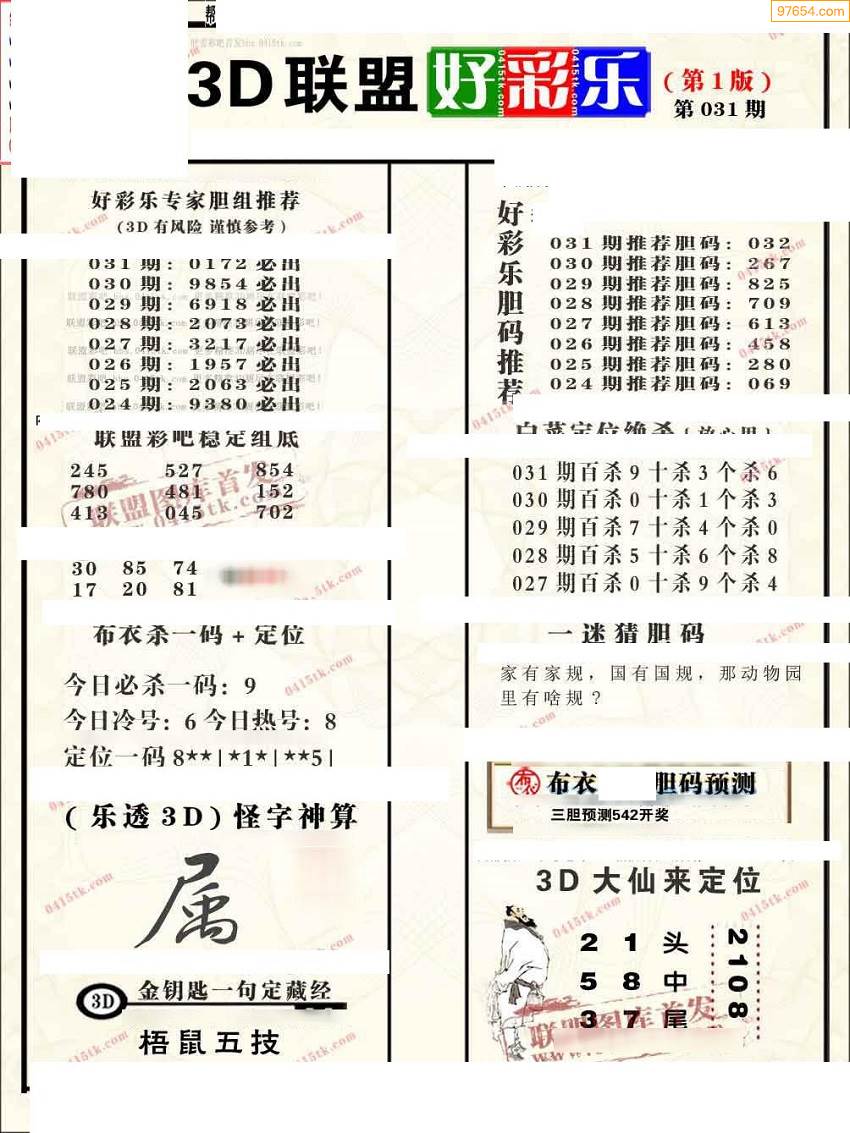 97654.com
3D联盟好彩乐
(第1版)
第031期
好彩乐专家胆组推荐
(3D有风险 谨慎参考)
031期: 0172必出
030期: 9854必出
029期: 6918必出
028期: 2073必出
027期: 3217必出
026期: 1957必出
025期: 2063必出
024期: 9380必出
联盟彩吧稳定组底
245 527 854
780 481 152
413 045 702
30 85 74
17 20 81
布衣杀一码+定位
今日必杀一码: 9
今日冷号: 6 今日热号: 8
定位一码 8**|*1*|**5|
(乐透3D)怪字神算
属
3D 金钥匙一句定藏经
梧鼠五技
好彩乐胆码推荐
031期推荐胆码: 032
030期推荐胆码: 267
029期推荐胆码: 825
028期推荐胆码: 709
027期推荐胆码: 613
026期推荐胆码: 458
025期推荐胆码: 280
024期推荐胆码: 069
白菜定位绝杀
031期百杀9十杀3个杀6
030期百杀0十杀1个杀3
029期百杀7十杀4个杀0
028期百杀5十杀6个杀8
027期百杀0十杀9个杀4
一迷猜胆码
家有家规，国有国规，那动物园
里有啥规？
布衣 胆码预测
三胆预测542开奖
3D大仙来定位
2 1 头
5 8 中
3 7 尾
2108
联盟图库首发
0415tk.com